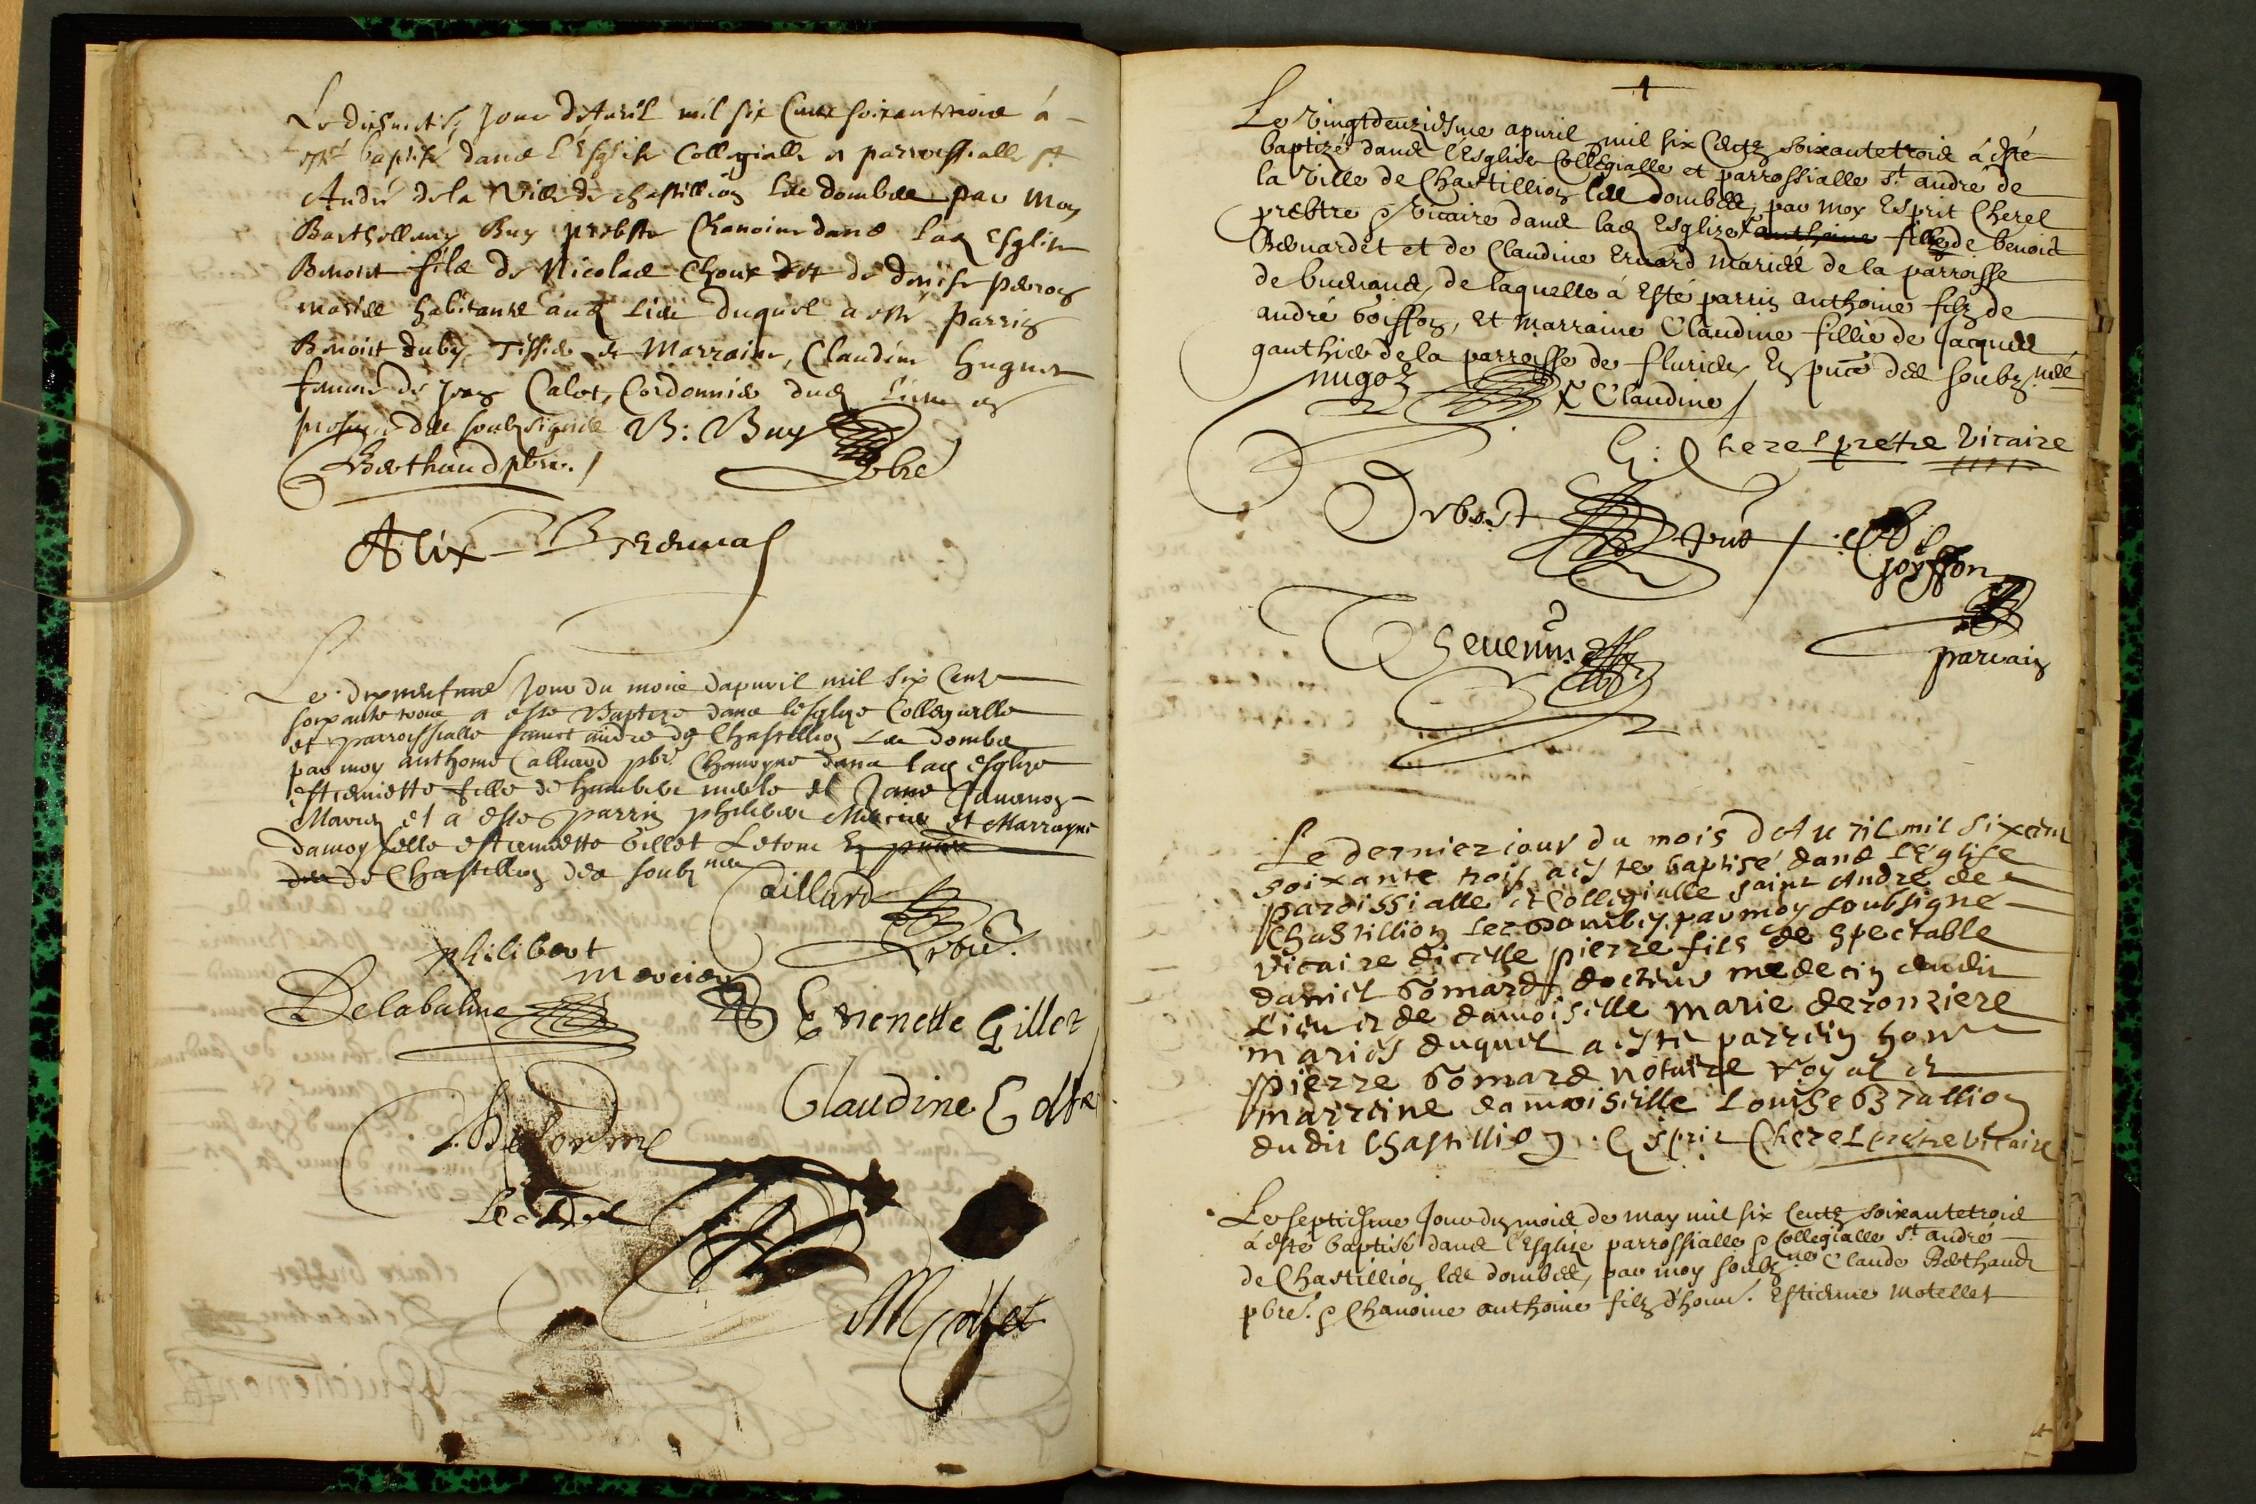 Le dixhuictie Jour d'Auril mil six Cent soixantetrois á
esté baptisé dans l'Esglise Collegialle et parroissialle st
André de la Ville de chastillion les dombes par moy
Barthellemy Buy prebstre Chanoine dans lad Esglise
Benoist filz de Nicolas Choux et de denise peron
mariés habitants aud lieu duquel a esté parrin
Benoist duby, Tissier et Marraine, Claudine huguet
femme de Jean Calot, Cordonnier dud lieu en
presence des soubzsignés B: Buy
Berthaud pbre. pbre
Alix
Le dixneufme Jour du mois dapuril mil six Cent
soixante trois a este Baptize dans lesglize Collegialle
et parroissialle sainct andre de Chastillion Les dombes
par moy anthoine Calliard pbre Chanoyne dans lad esglize
estiennette fille de humbert et Jane
Mariez et a este parrin philibert Mercier et Marrayne
damoyselle estiennette Gillet
de Chastillion des soubz nes
Caillard
pbre.
philibert
mercier
Delabalme
Etienette Gillet
Claudine
Delorme
1
Le Vingtdeuziesme apuril mil six Centz soixantetrois á esté
baptizé dans l'Esglise Collegialle et parrossialle st. andré de
la ville de Chastillion les dombes, par moy Esprit Cherel
prebtre & vicaire dans lad Esglize anthoine fille de benoict
Bernardet et de Claudine Erard mariés de la parroisse
de buenans, de laquelle á Esté parrin anthoine filz de
andré Goiffon, et marraine Claudine fillie de Jacques
gauthier de la parroisse de flurieu, En pnce des soubz nés
nugoz
Claudine
E: Cherel prétre Vicaire
goyffon
parrain
Theuenin
Le dernier iour du mois d'Auril mil sixcent
soixante trois a esté baptisé dans l'église
paroissialle et Collegialle saint André de
Chastillion les dombes par moy soubsigné
vicaire dicelle pierre fils de spectable
daniel Gomard docteur médecin dudit
Lieu et de damoiselle marie deronziere
mariés duquel a esté parrein honr
pierre Gomard notaire royal et
marreine damoiselle Louise Grallion
dudit Chastillion. Esprit Cherel prétre vicaire
Le septiesme Jour du mois de may mil six Centz soixantetrois
á esté baptisé dans l'Esglize parrossialle & Collegialle st. andré
de Chastillion les dombes, par moy soubz né Claude Berthaud
pbre. & Chanoine anthoine filz d'honn. Estienne Motellet